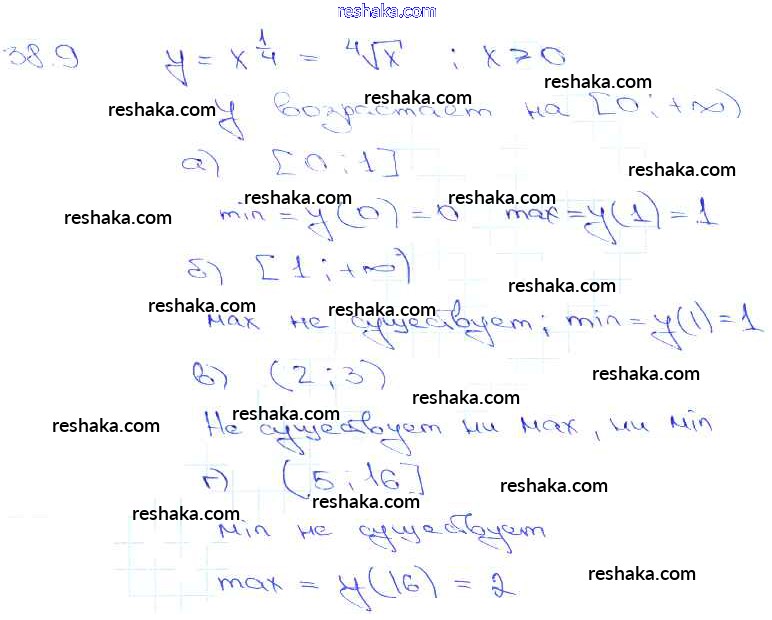 reshaka.com
38.9 y = x^{1/4} = ⁴√x ; x ≥ 0
reshaka.com reshaka.com reshaka.com
y возрастает на [0; +∞)
а) [0; 1]
reshaka.com
reshaka.com reshaka.com reshaka.com
min = y(0) = 0 max = y(1) = 1
б) [1; +∞)
reshaka.com
reshaka.com reshaka.com
max не существует; min = y(1) = 1
в) (2; 3)
reshaka.com
reshaka.com
reshaka.com reshaka.com
Не существует ни max, ни min
г) (5; 16]
reshaka.com
reshaka.com reshaka.com
min не существует
reshaka.com
max = y(16) = 2